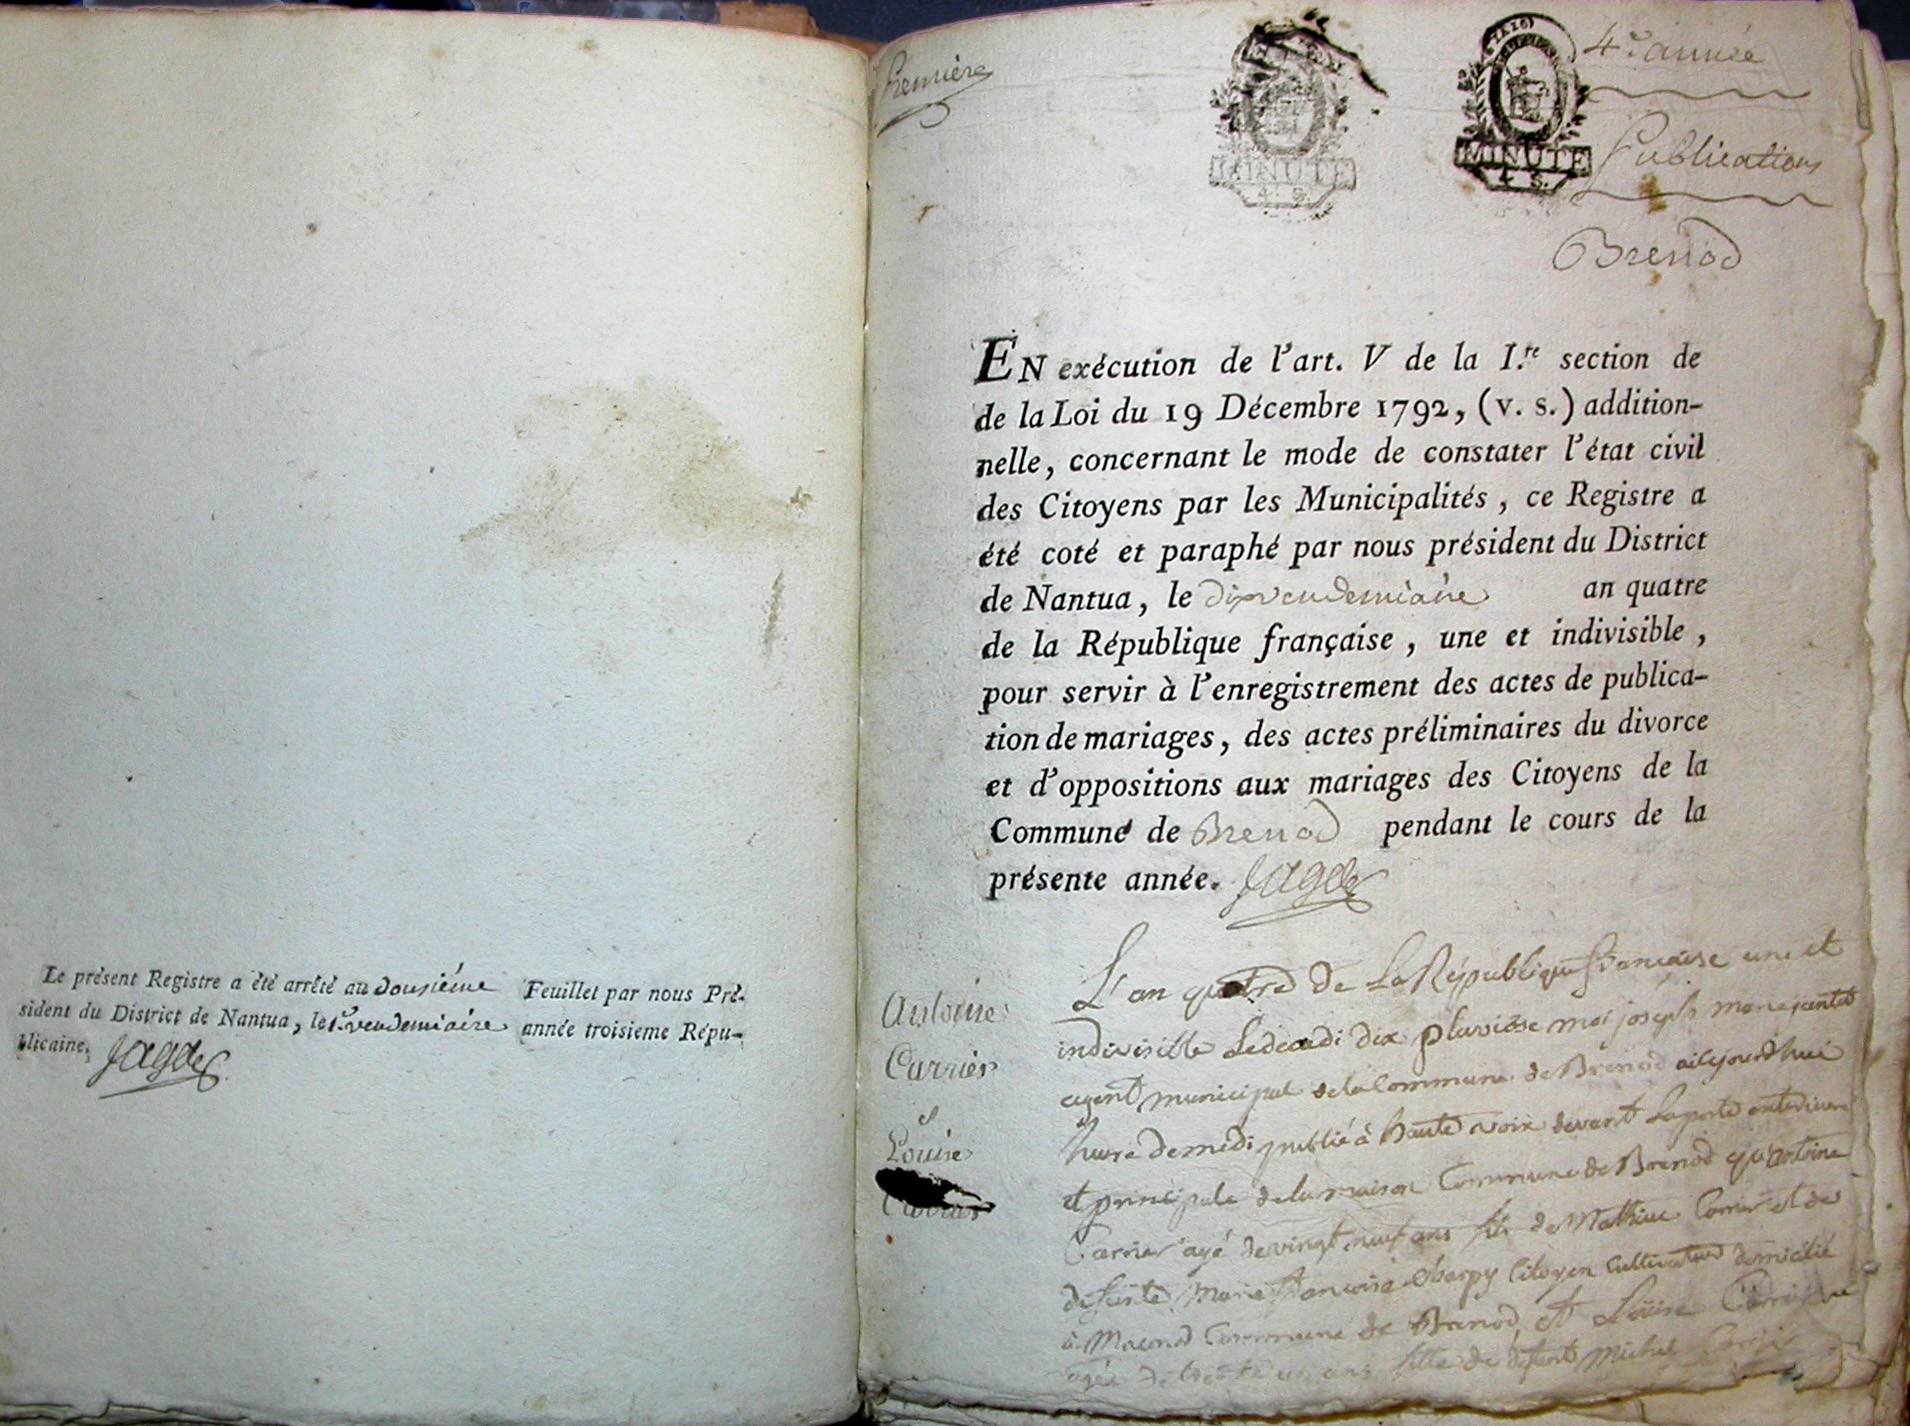 Le présent Registre a été arrêté au dousiéme Feuillet par nous Pré-
sident du District de Nantua, le 1er vendemiaire année troisieme Répu-
blicaine.
Première
MINUTE
4 S.
MINUTE
4 S.
4e année
Publications
Brenod
EN exécution de l'art. V de la I.re section de
de la Loi du 19 Décembre 1792, (v. s.) addition-
nelle, concernant le mode de constater l'état civil
des Citoyens par les Municipalités, ce Registre a
été coté et paraphé par nous président du District
de Nantua, le dix vendemiaire an quatre
de la République française, une et indivisible,
pour servir à l'enregistrement des actes de publica-
tion de mariages, des actes préliminaires du divorce
et d'oppositions aux mariages des Citoyens de la
Commune de Brenod pendant le cours de la
présente année.
Antoine
Carrier
et
Louise
L'an quatre de La République française une et
indivisible Le decadi dix pluviôse moi joseph
agent municipal de la Commune de Brenod aujourdhui
heure de midi publié à haute voix devant La porte
et principale de la maison Commune de Brenod qu'antoine
Carrier agé de vingt neuf ans fils de Mathieu Carrier et de
defunte Marie françoise Charpy Citoyen Cultivateur domicilié
à Maconod Commune de Brenod, et Louise
agée de ans fille de defunt Michel Carrier